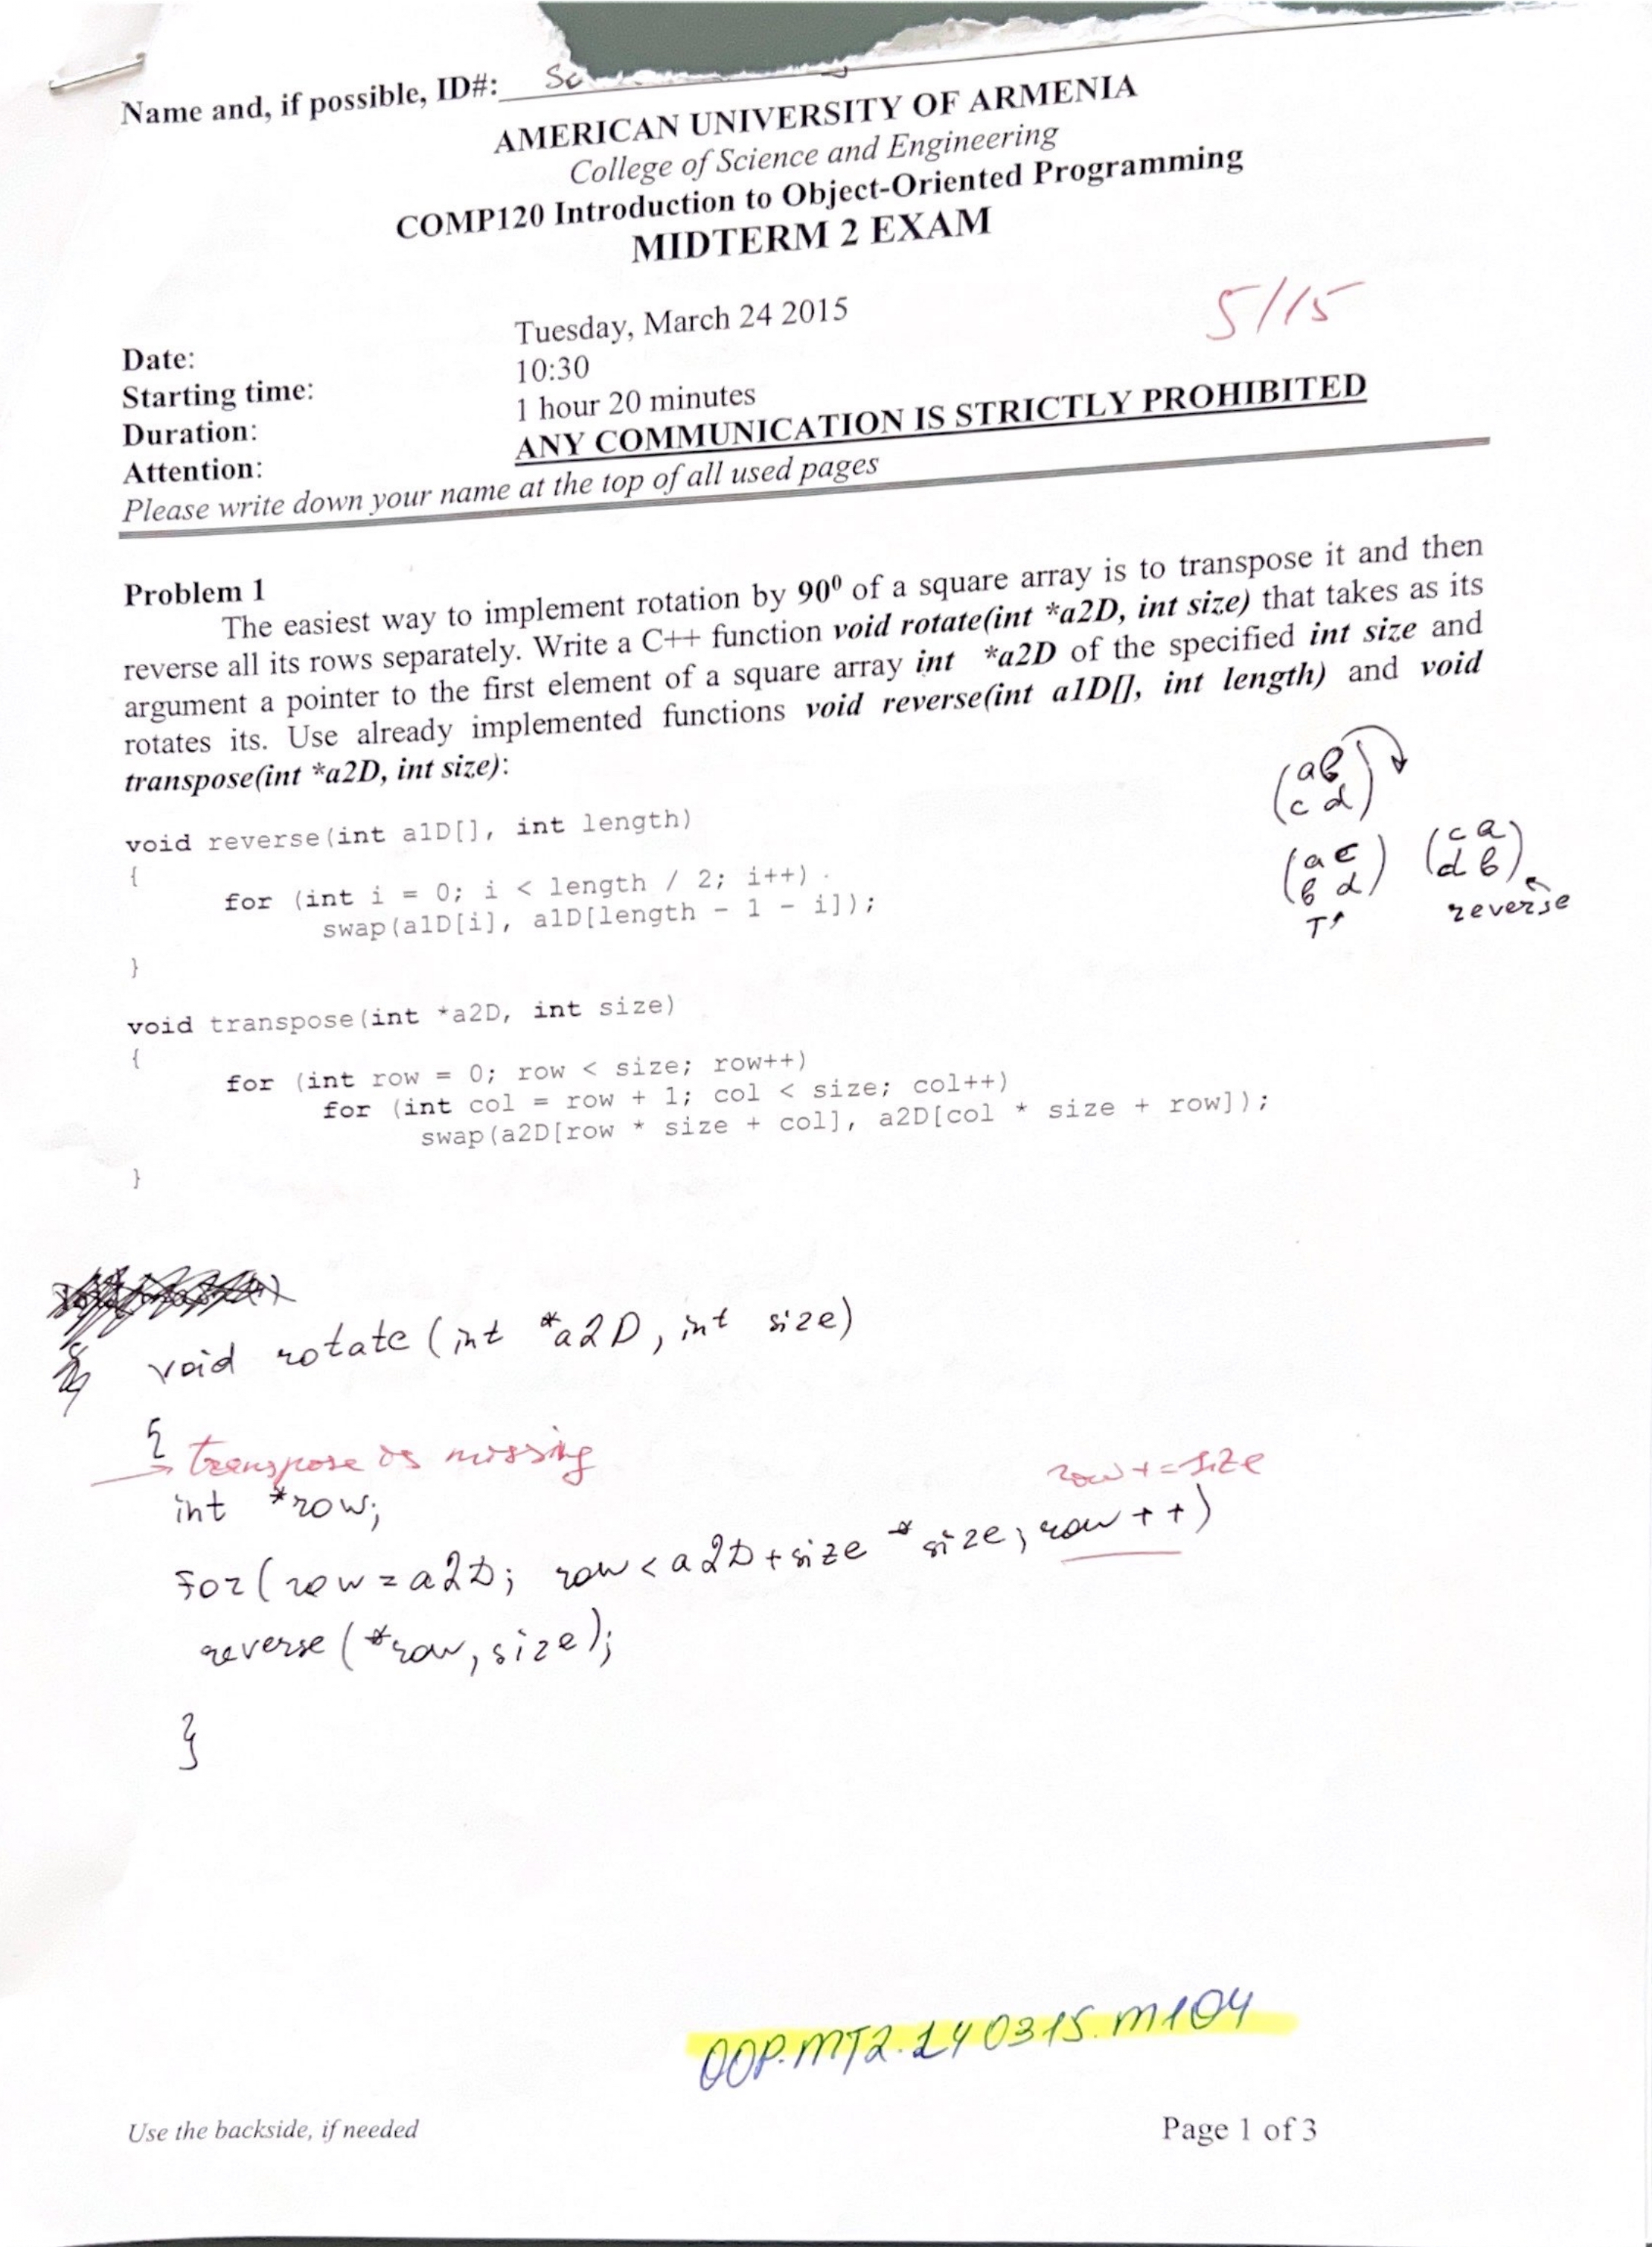 Name and, if possible, ID#:
AMERICAN UNIVERSITY OF ARMENIA
College of Science and Engineering
COMP120 Introduction to Object-Oriented Programming
MIDTERM 2 EXAM
5/15
Date: Tuesday, March 24 2015
Starting time: 10:30
Duration: 1 hour 20 minutes
Attention: ANY COMMUNICATION IS STRICTLY PROHIBITED
Please write down your name at the top of all used pages
Problem 1
The easiest way to implement rotation by 90⁰ of a square array is to transpose it and then
reverse all its rows separately. Write a C++ function void rotate(int *a2D, int size) that takes as its
argument a pointer to the first element of a square array int *a2D of the specified int size and
rotates its. Use already implemented functions void reverse(int a1D[], int length) and void
transpose(int *a2D, int size):
(a b
c d)
(a c
b d)
T
(c a
d b)
reverse
void reverse(int a1D[], int length)
{
for (int i = 0; i < length / 2; i++)
swap(a1D[i], a1D[length - 1 - i]);
}
void transpose(int *a2D, int size)
{
for (int row = 0; row < size; row++)
for (int col = row + 1; col < size; col++)
swap(a2D[row * size + col], a2D[col * size + row]);
}
void rotate (int *a2D, int size)
{
transpose is missing
int *row;
row += size
for(row = a2D; row < a2D + size * size; row ++)
reverse (*row, size);
}
OOP.MT2.240315.M104
Use the backside, if needed
Page 1 of 3